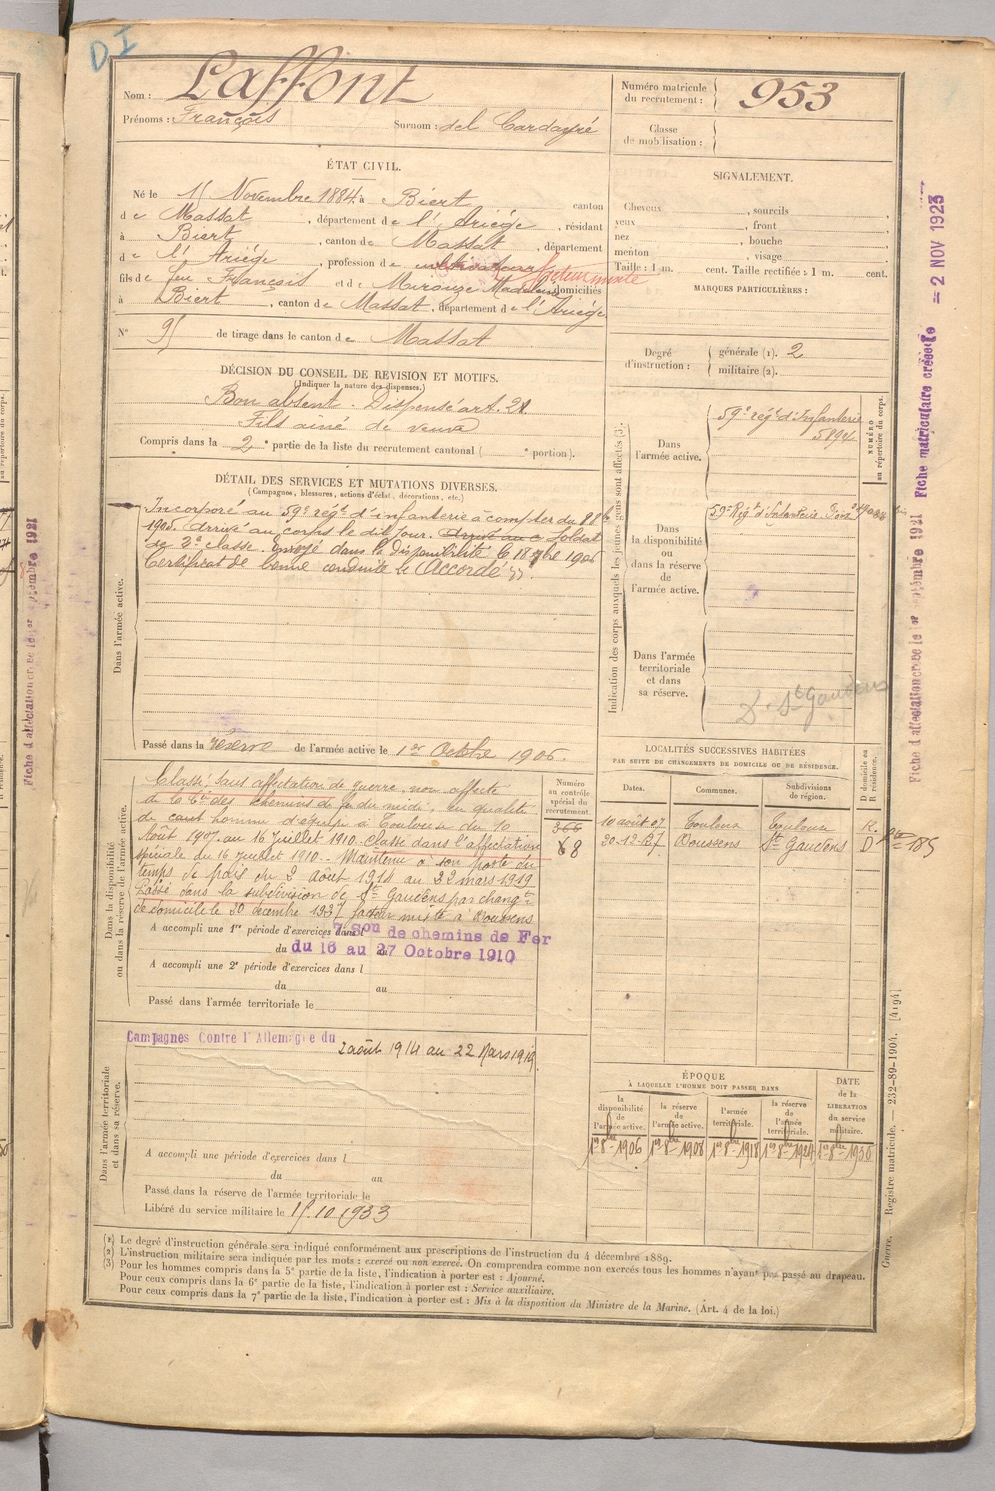 DI
Nom : Laffont
Prénoms : François Surnom : del Cardayré
Numéro matricule du recrutement : 953
Classe de mobilisation :
ÉTAT CIVIL.
Né le 15 Novembre 1884 à Biert canton
de Massat, département de l'Ariège, résidant
à Biert, canton de Massat, département
de l'Ariège, profession de cultivateur facteur mixte
fils de feu François et de Mirouze Madeleine domiciliés
à Biert, canton de Massat, département de l'Ariège.
N° 95 de tirage dans le canton de Massat
SIGNALEMENT.
Cheveux , sourcils ,
yeux , front ,
nez , bouche ,
menton , visage
Taille : 1 m. cent. Taille rectifiée : 1 m. cent.
MARQUES PARTICULIÈRES :
Degré d'instruction : générale (1). 2
militaire (2).
DÉCISION DU CONSEIL DE REVISION ET MOTIFS.
(Indiquer la nature des dispenses.)
Bon absent. Dispensé art. 21
Fils ainé de veuve
Compris dans la 2e partie de la liste du recrutement cantonal ( e portion).
DÉTAIL DES SERVICES ET MUTATIONS DIVERSES.
(Campagnes, blessures, actions d'éclat, décorations, etc.)
Dans l'armée active.
Incorporé au 59e régt d'infanterie à compter du 8 8bre
1905. Arrivé au corps le dit jour. Arrivé au c Soldat
de 2e classe. Envoyé dans la disponibilité le 18 7bre 1906
Certificat de bonne conduite le "Accordé".
Passé dans la réserve de l'armée active le 1er Octobre 1906.
Indication des corps auxquels les jeunes gens sont affectés (3).
NUMÉRO au répertoire du corps.
Dans l'armée active.
59e régt d'Infanterie
5894
Dans la disponibilité ou dans la réserve de l'armée active.
59e Regt d'Infanterie Foix
Dans l'armée territoriale et dans sa réserve.
St Gaudens
Dans la disponibilité ou dans la réserve de l'armée active.
Numéro au contrôle spécial du recrutement.
366
68
Classé, sans affectation de guerre, non affecté
de la Cie des chemins de fer du midi, en qualité
de cant homme d'équipe à Toulouse du 10
Août 1907 au 16 Juillet 1910. Classé dans l'affectation
spéciale du 16 Juillet 1910. Maintenu à son poste du
temps de paix du 2 Août 1914 au 22 mars 1919
Passé dans la subdivision de St Gaudens par changt
de domicile le 30 décembre 1937 facteur mixte à Boussens
A accompli une 1re période d'exercices dans l
7 Son de chemins de Fer
du au
du 16 au 27 Octobre 1910
A accompli une 2e période d'exercices dans l
du au
Passé dans l'armée territoriale le
LOCALITÉS SUCCESSIVES HABITÉES
PAR SUITE DE CHANGEMENTS DE DOMICILE OU DE RÉSIDENCE.
Dates. Communes. Subdivisions de région. D domicile ou R résidence.
10 août 07 Toulouse Toulouse R.
30-12-37 Boussens St Gaudens D
Dans l'armée territoriale et dans sa réserve.
Campagnes Contre l'Allemagne du
2 août 1914 au 22 Mars 1919.
A accompli une période d'exercices dans l
du au
Passé dans la réserve de l'armée territoriale le
Libéré du service militaire le 15.10 1933
ÉPOQUE
À LAQUELLE L'HOMME DOIT PASSER DANS
la disponibilité de l'armée active. la réserve de l'armée active. l'armée territoriale. la réserve de l'armée territoriale.
DATE de la LIBÉRATION du service militaire.
1er 8bre 1906 1er 8bre 1908 1er 8bre 1918 1er 8bre 1924 1er 8bre 1930
(1) Le degré d'instruction générale sera indiqué conformément aux prescriptions de l'instruction du 4 décembre 1889.
(2) L'instruction militaire sera indiquée par les mots : exercé ou non exercé. On comprendra comme non exercés tous les hommes n'ayant pas passé au drapeau.
(3) Pour les hommes compris dans la 5e partie de la liste, l'indication à porter est : Ajourné.
Pour ceux compris dans la 6e partie de la liste, l'indication à porter est : Service auxiliaire.
Pour ceux compris dans la 7e partie de la liste, l'indication à porter est : Mis à la disposition du Ministre de la Marine. (Art. 4 de la loi.)
Guerre. Registre matricule. — 232-89-1904. [4194]
Fiche d'affectation créée le 1er septembre 1921 Fiche matriculaire créée le = 2 NOV 1923
Fiche d'affectation créée le 1er septembre 1921